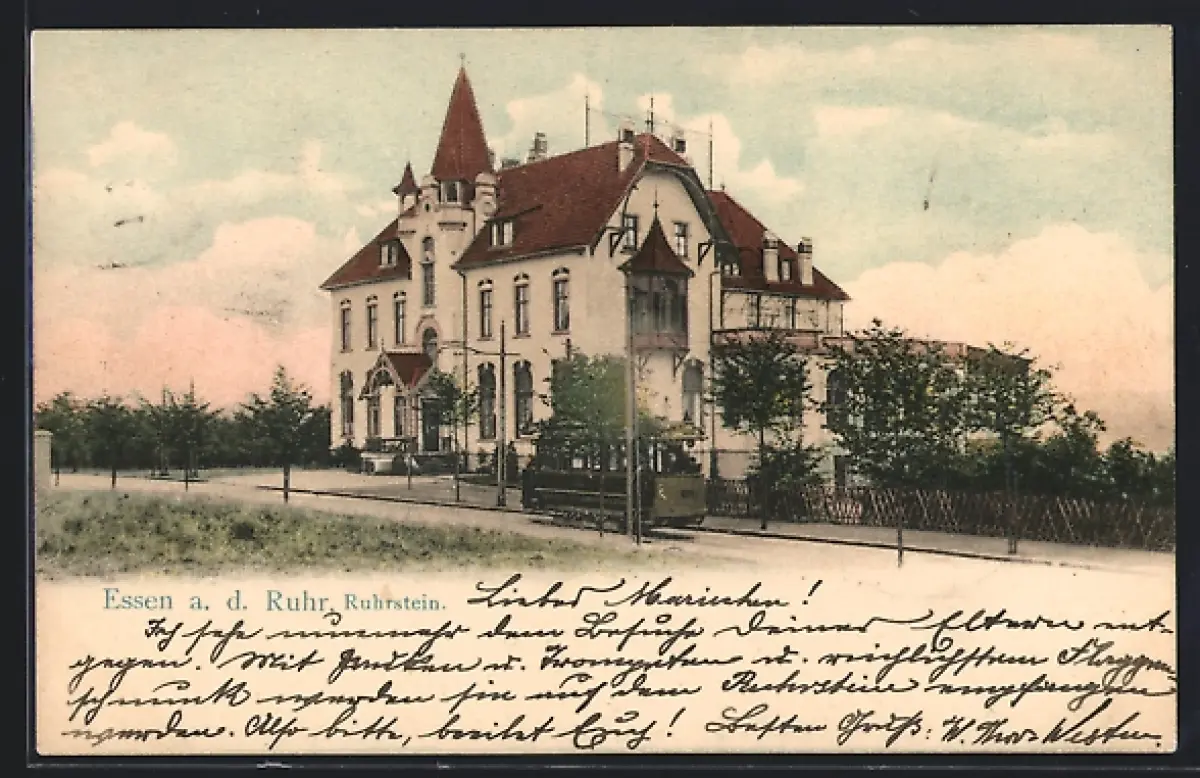 Essen a. d. Ruhr, Ruhrstein.
Liebes Mariechen!
Ich sehe nunmehr dem Besuche Deiner Eltern ent-
gegen. Mit Pauken u. Trompeten u. reichlichstem Flaggen
schmuck werden sie auf dem Ruhrstein empfangen
werden. Also bitte, beeilet Euch! Besten Gruß: